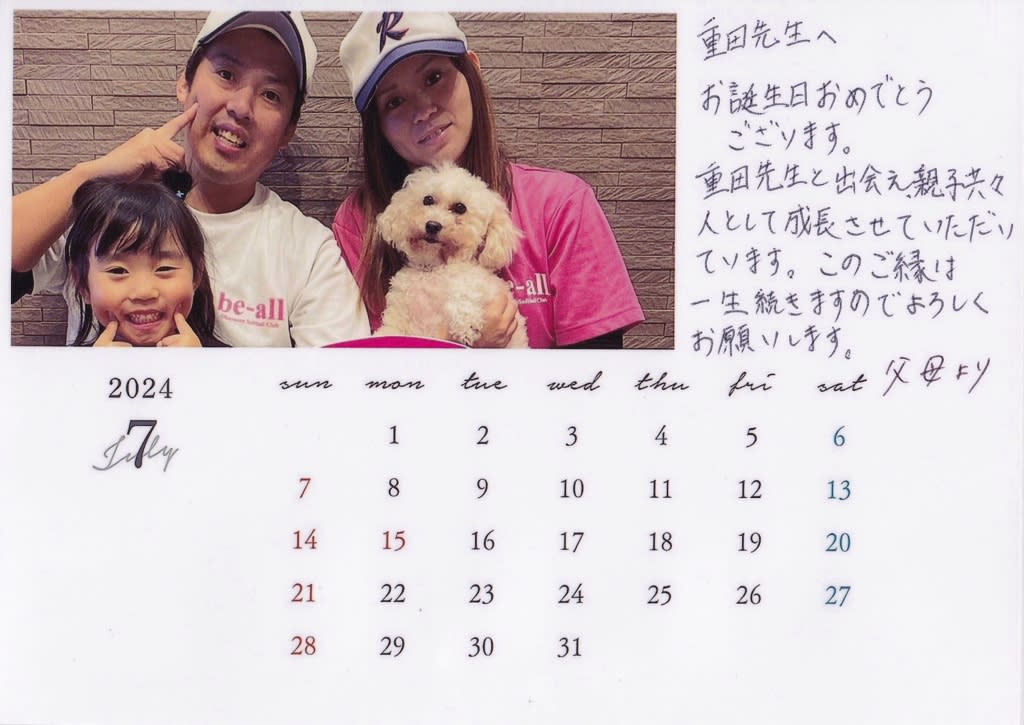 R
be-all
be-all
Softball Club
重田先生へ
お誕生日おめでとう
ございます。
重田先生と出会え、親子共々
人として成長させていただい
ています。このご縁は
一生続きますのでよろしく
お願いします。
父母より
2024
7
July
sun mon tue wed thu fri sat
1 2 3 4 5 6
7 8 9 10 11 12 13
14 15 16 17 18 19 20
21 22 23 24 25 26 27
28 29 30 31